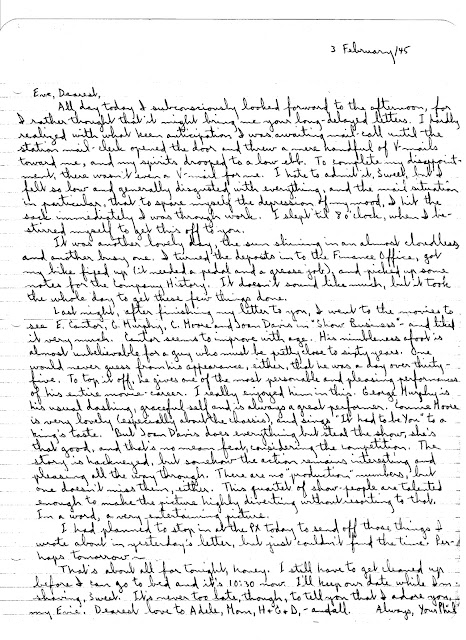 3 February/45
Evie, Dearest,
All day today I subconsciously looked forward to the afternoon, for
I rather thought that it might bring me your long-delayed letters. I hardly
realized with what keen anticipation I was awaiting mail-call until the
station mail-clerk opened the door and threw a mere handful of V-mails
toward me, and my spirits drooped to a low ebb. To complete my disappoint-
ment, there wasn't even a V-mail for me. I hate to admit it, Sweet, but I
felt so low and generally disgusted with everything, and the mail situation
in particular, that to spare myself the depression of my mood, I hit the
sack immediately I was through work. I slept 'til 8 o'clock, when I be-
stirred myself to get this off to you.
It was another lovely day, the sun shining in an almost cloudless
and another busy one. I turned the deposits in to the Finance Office, got
my bike fixed up (it needed a pedal and a grease job), and picked up some
notes for the Company History. It doesn't sound like much, but it took
the whole day to get these few things done.
Last night, after finishing my letter to you, I went to the movies to
see E. Cantor, G. Murphy, C. Moore and Joan Davis in "Show Business" and liked
it very much. Cantor seems to improve with age. His nimbleness afoot is
almost unbelievable for a guy who must be pretty close to sixty years. One
would never guess from his appearance, either, that he was a day over thirty-
five. To top it off, he gives one of the most personable and pleasing performances
of his entire movie-career. I really enjoyed him in this. George Murphy is
his usual dashing, graceful self and is always a great performer. Connie Moore
is very lovely (especially about the chassis), and sings "It had to be You" to a
king's taste. But Joan Davis does everything but steal the show, she's
that good, and that's no mean feat, considering the competition. The
story is hackneyed, but somehow the action remains interesting and
pleasing all the way through. There are no "production" numbers, but
one doesn't miss them, either. This quartet of show-people are talented
enough to make the picture highly diverting without resorting to that.
In a word, a very entertaining picture.
I had planned to stop in at the PX today to send off those things I
wrote about in yesterday's letter, but just couldn't find the time. Per-
haps tomorrow—
That's about all for tonight, honey. I still have to get cleaned up
before I can go to bed and it's 10:30 now. I'll keep our date while I'm
shaving, Sweet. It's never too late, though, to tell you that I adore you,
my Evie. Dearest love to Adele, Mom, H+G+D,- and all. Always, Your Phil